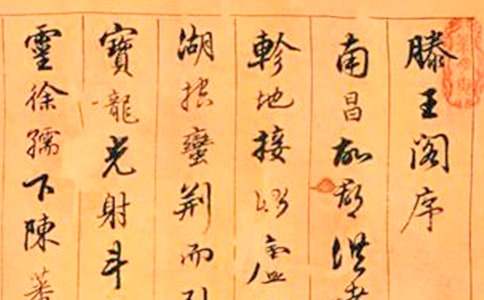 滕王阁序
南昌故郡洪都
軫地接衡廬
湖控蠻荊而引
寶龍光射斗
靈徐孺下陳蕃